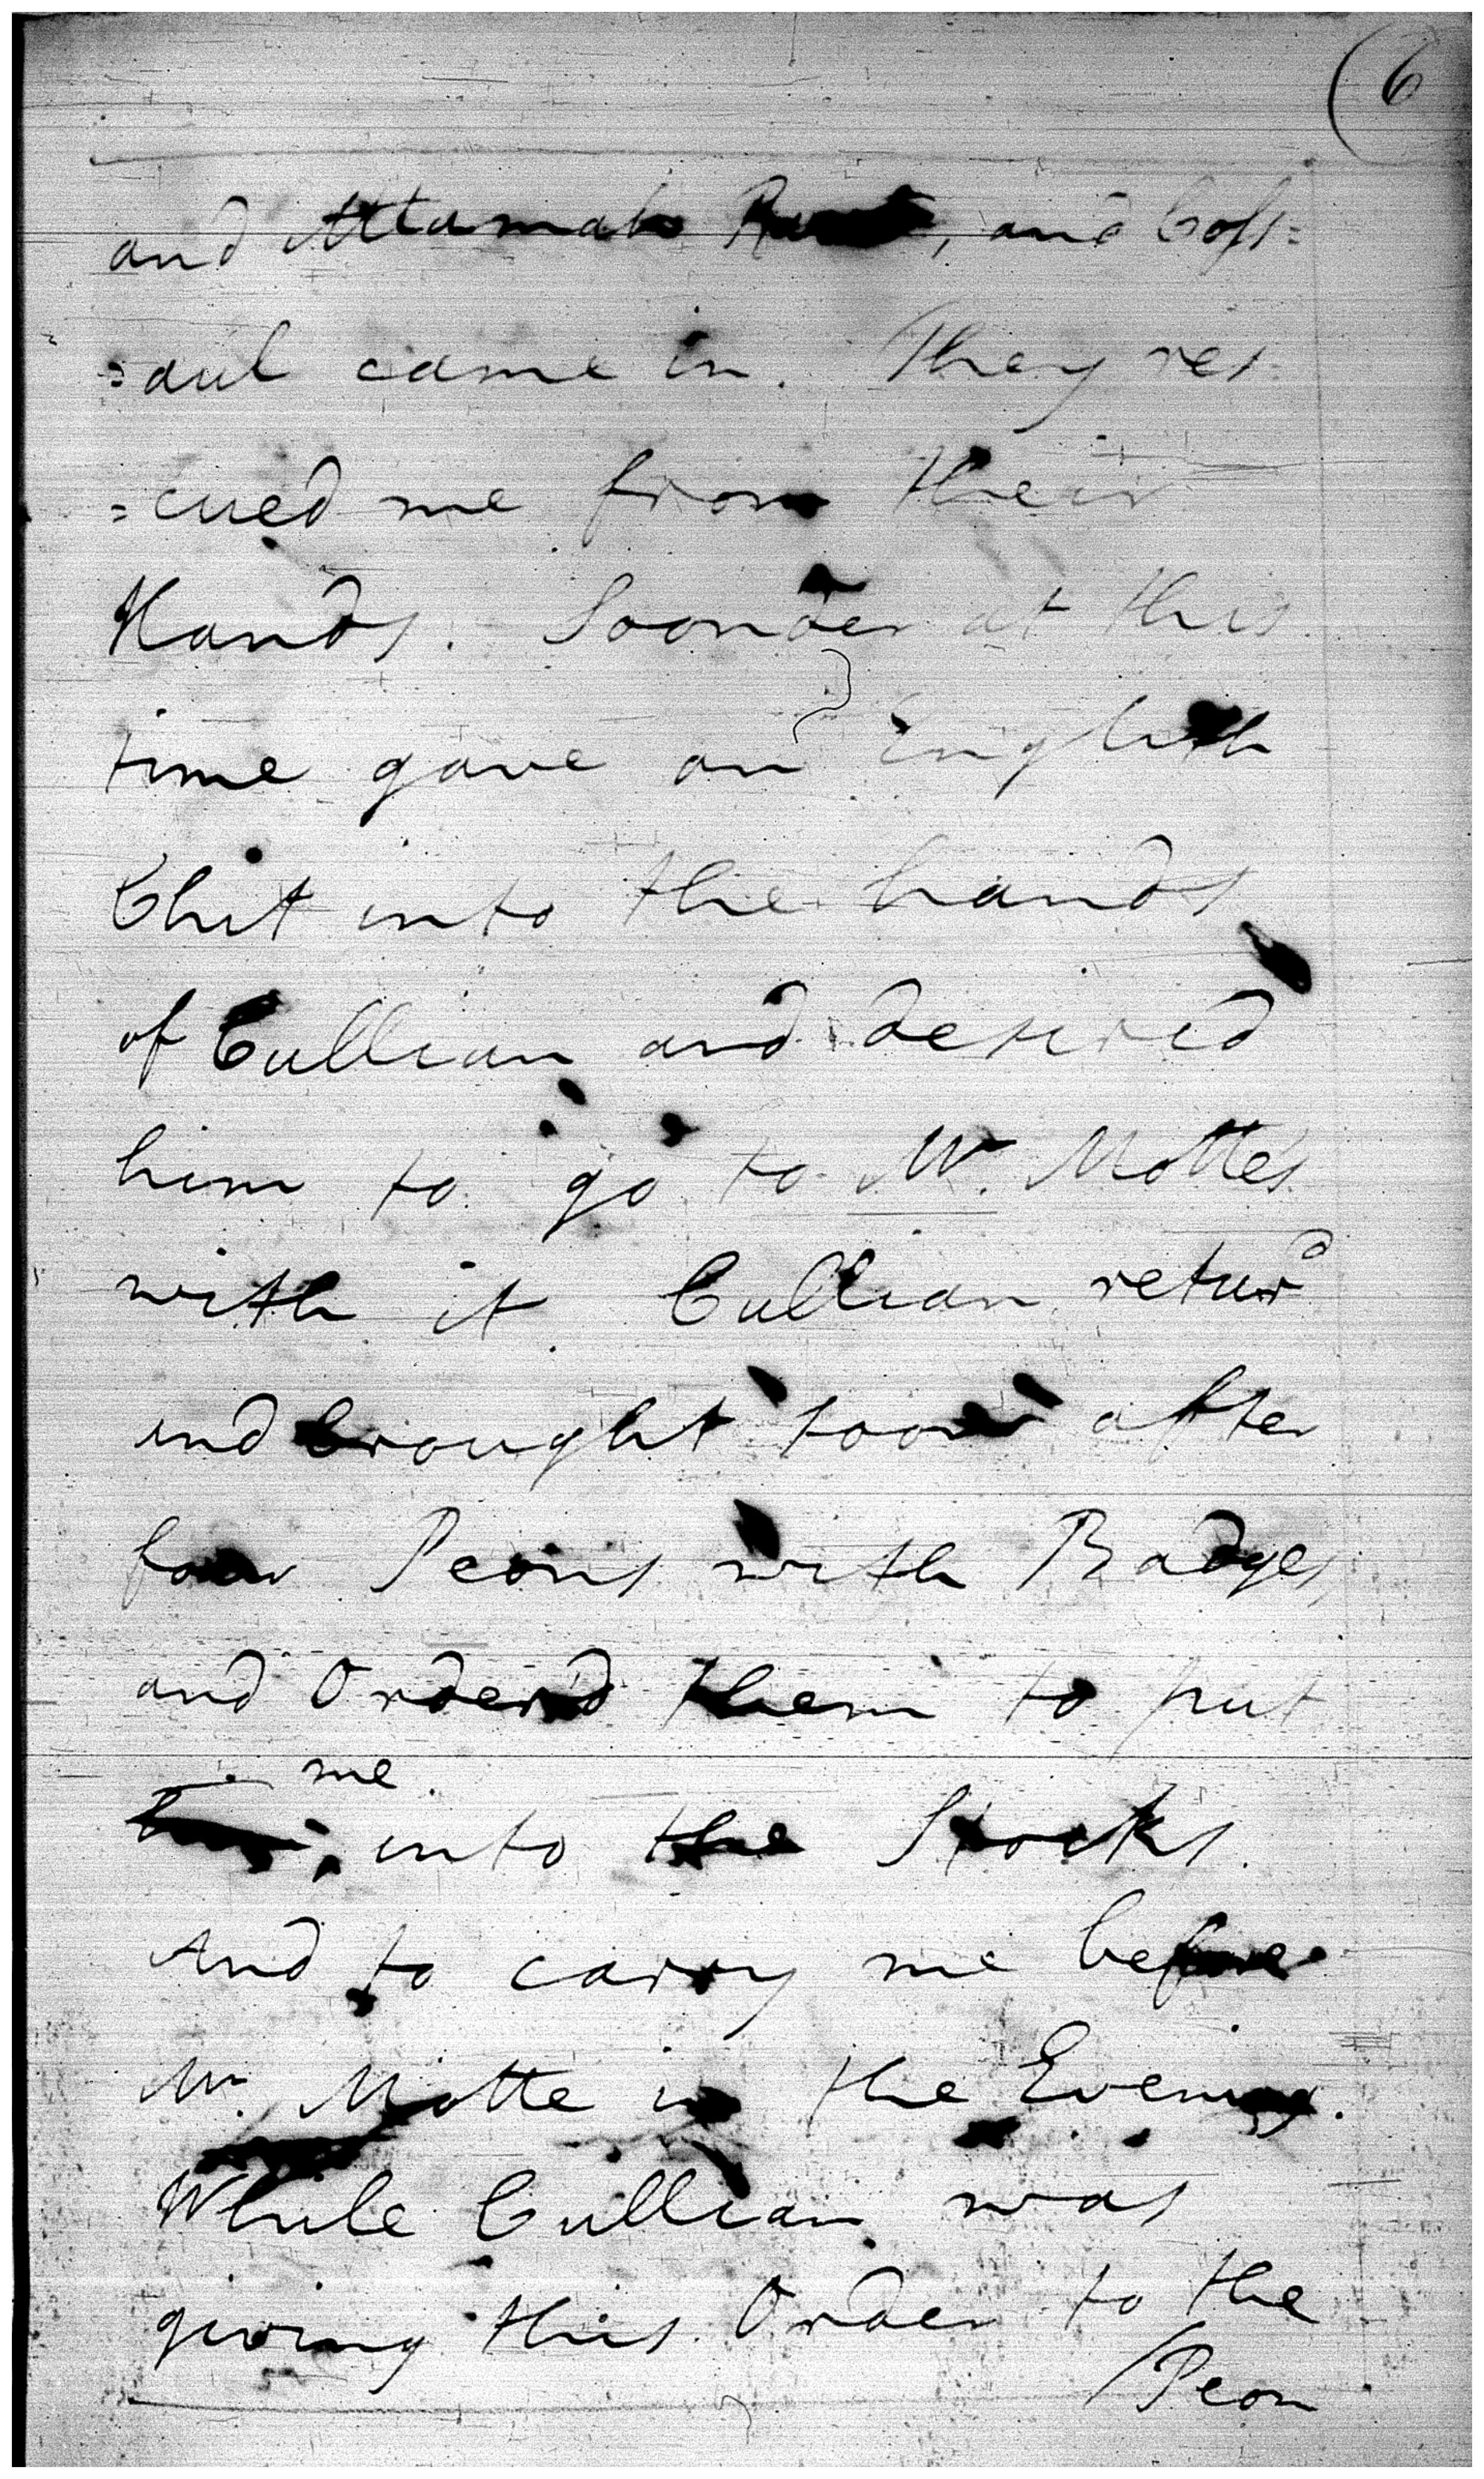 (6
and Attamah , and Coss=
=aul came in. They res=
=cued me from their
Hands. Soonder at this
time gave an English
Chit into the hands
of Cullian and desired
him to go to Mr. Mottes
with it Cullian retur'd
and brought soon after
four Peons with Badges
and Order'd them to put
me
into the Stocks.
And to carry me before
Mr. Motte in the Evening.
While Cullian was
giving this Order to the
/Peon